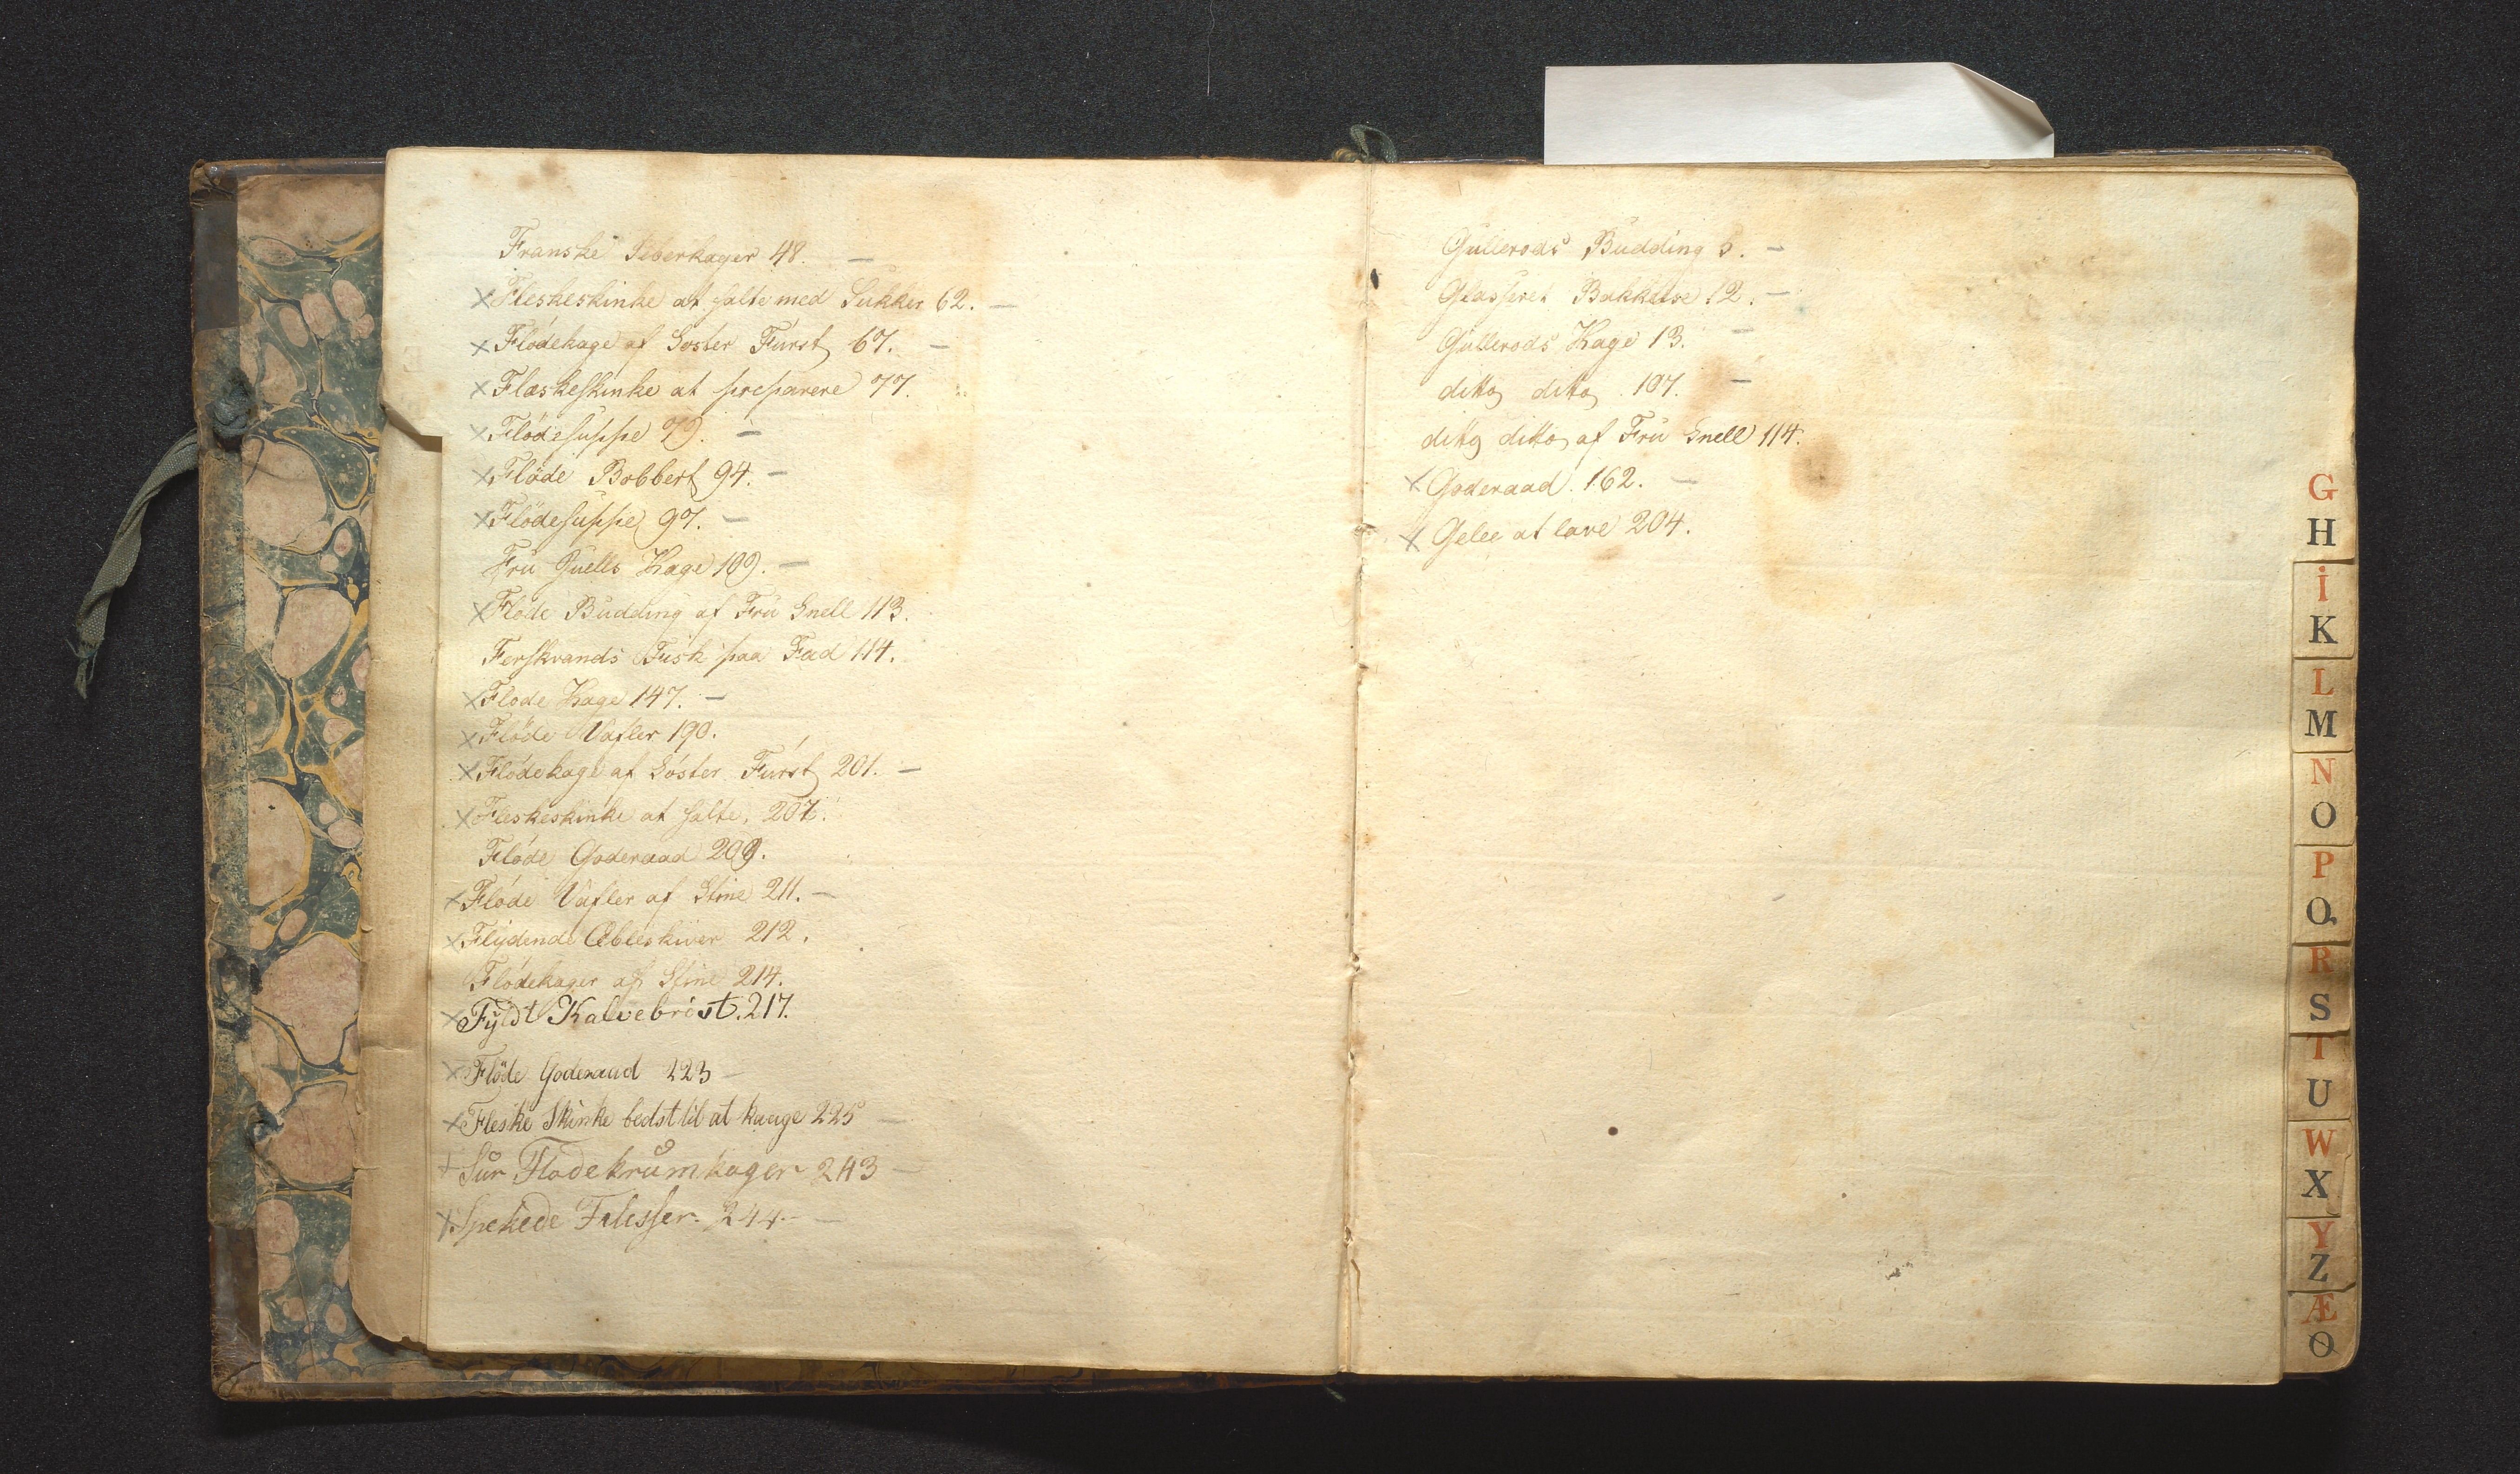 Franske Peberkager 48. —
x Fleskeskinke at salte med Sukker 62. —
x Flødekage af Søster Fürst 67. —
x Flæskeskinke at preparere 77.
x Flødesuppe 79. —
x Fløde Bobbert 94. —
x Flødesuppe 97. —
Frü Juells Kage 109. —
x Fløde Budding af Frü Snell 113.
Ferskvands Fisk paa Fad 114.
x Fløde Kage 147. —
x Fløde Vafler 190.
x Flødekage af Søster Fürst 201. —
x Fleskeskinke at salte. 207.
Fløde Goderaad 209.
x Fløde Vafler af Stine 211. —
x Flydende Æbleskiver 212.
Flødekager af Stine 214.
x Fyldt Kalvebrøst. 217.
x Flöde Goderaad 223 —
x Fleske Skinke bedst til at kaage 225 —
x Sur Flødekrumkager 243 —
x Spekede 244. —
Gullerods Budding 5. —
Glasseret Bakkelse 12. —
Gullerods Kage 13. —
ditto ditto 107. —
ditto ditto af Frü Snell 114.
x Goderaad. 162. —
x Gelee at lave 204.
G
H
I
K
L
M
N
O
P
Q
R
S
T
U
W
X
Y
Z
Æ
Ø